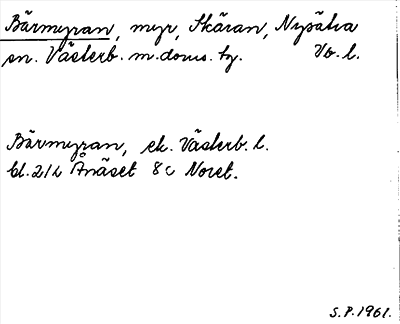 Bärmyran, myr, Skäran, Nysätra
sn. Västerb. m. doms. hg. Vb. l.
Bärmyran, ek. Västerb. l.
bl. 212 Ånäset 8 c Noret.
S.P. 1961.